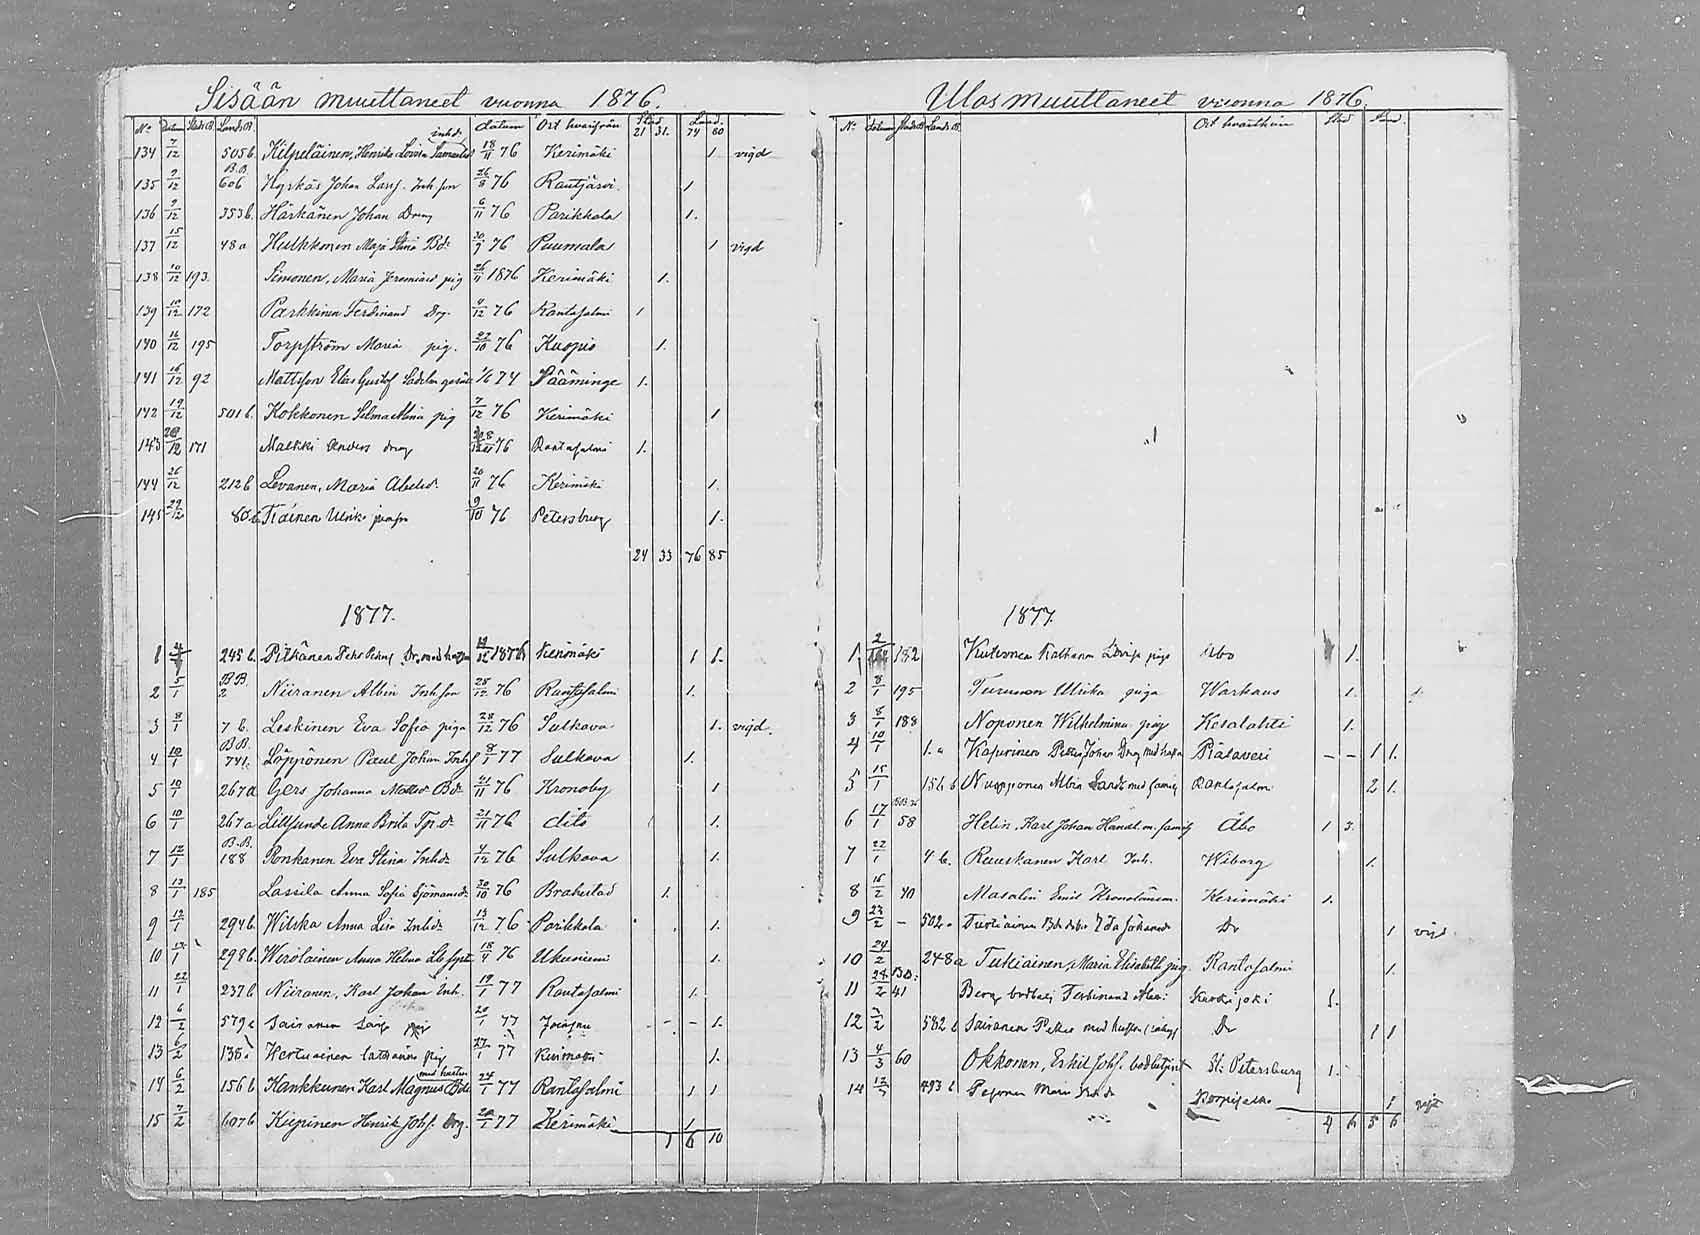 Sisään muuttaneet vuonna 1876.
No Datum Stads B. Lands B. datum Ort hvarifrån Stad Land.
21 31. 74 80
134 7/12 505 b. Kilpeläinen, Henrika Lovisa inhd. 18/11 76 Kerimäki 1 vigd
135 9/12 B.B. 606 Hyrkäs Johan Inh. son 26/8 76 Rautjärvi 1
136 9/12 353 b. Härkänen Johan Dräng 6/11 76 Parikkala 1.
137 15/12 48 a Hulkkonen Maja Stina Bd. 30/9 76 Puumala 1 vigd
138 10/12 193. Simonen, Maria pig 26/11 1876 Kerimäki 1.
139 10/12 172 Parkkinen Ferdinand Drg. 4/12 76 Rantasalmi 1
140 16/12 195 Torpström Maria pig. 22/10 76 Kuopio 1.
141 16/12 92 Mattsson Elas Gustof 1/6 74 Sääminge 1.
142 19/12 501 b. Kokkonen Selma Maria pig 7/12 76 Kerimäki 1
143 20/12 171 Malkki Anders dräng 76 Rantasalmi 1.
144 26/12 212 b Levanen, Maria Abelsd. 20/11 76 Kerimäki 1.
145 29/12 80 b Tiainen Ulrika 9/10 76 Petersburg 1.
24 33 76 85
1877.
1 245 b. Pitkänen 1876 Kerimäki 1 1.
2 5/1 B.B. 2 Niiranen Albin Inh. son 28/12 76 Rantasalmi 1.
3 8/1 7 b. Leskinen Eva Sofia piga 28/12 76 Sulkava 1. vigd.
4 10/1 B.B. 741. Löppönen Paul Johan 8/1 77 Sulkava 1.
5 10/1 267 a Gers Johanna Bd. 21/11 76 Kronoby 1
6 10/1 267 a Lillsunde Anna Brita 21/11 76 dito 1.
7 12/1 B.B. 188 Ronkanen Eva Stina Inhd. 4/12 76 Sulkava 1.
8 13/1 185 Lassila Anna Sofia Sjömansd. 30/10 76 Brahestad 1.
9 13/1 294 b. Wilska Anna Lisa Inhd. 13/12 76 Parikkala 1.
10 13/1 298 b. Wirolainen Anna Helena 18/4 76 Ukuniemi 1.
11 22/1 237 b Niiranen, Karl Johan Inh. 19/1 77 Rantasalmi 1.
12 6/2 579 Sairanen 20/1 77 - - 1.
13 6/2 Kertuainen Catharina pig 27/1 77 Kerimäki 1.
14 6/2 156 b Kankkunen Karl Magnus med hustru 24/1 77 Rantasalmi 1 1
15 7/2 607 b Kiepinen Henrik Johs. Drg. 20/1 77 Kerimäki 1
1 6 10
Ulosmuuttaneet vuonna 1876.
No datum Stads B. Lands B. Ort hvarthän Stad Land.
1877.
1 182 Kutvonen Katharina Lovisa piga Åbo 1.
2 8/1 195 Turunen Ulrika piga Warkaus 1.
3 8/1 188 Noponen Wilhelmina pig Kesälahti 1.
4 10/1 1. a Kapurinen Petter Johan Drng med hustru - - 1 1.
5 15/1 151 b Albin med familj Rantasalmi 2 1.
6 17/1 58 Helin, Karl Johan Handl. m. familj Åbo 1 3.
7 22/1 4 b. Ruuskanen Karl Inh. Wiborg 1.
8 15/2 40 Masalin Emil Kerimäki 1.
9 23/2 - 502 Ida Johansd. Do 1 vigd
10 24/2 248 a Tukiainen, Maria Elisabeth pig. Rantasalmi 1.
11 24/2 41 Berg Ferdinand Kurkijoki 1.
12 582 b Sairanen Petter med hustru Do 1 1
13 4/3 60 Okkonen, Eskil Johs. St. Petersburg 1.
14 493 b 1 vigd
4 6 5 6